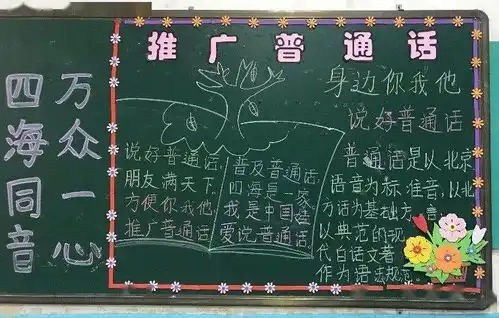 推广普通话
万众一心
四海同音
说好普通话,
朋友满天下。
方便你我他,
推广普通话
普及普通话,
四海是一家。
我是中国娃
爱说普通话
身边你我他
说好普通话
普通话是以北京
语音为标准音,以北
方话为基础方言,
以典范的现
代白话文著
作为语法规范